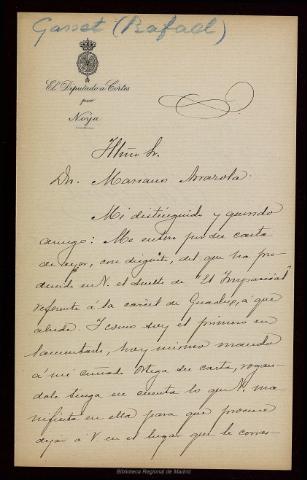 Gasset (Rafael)
El Diputado á Cortes
por
Noya
Iltmo Sr.
Dn. Mariano Arrazola.
Mi distinguido y querido
amigo: Me entero por su carta
de ayer, con disgusto, del que ha pro-
ducido en V. el suelto de "El Imparcial"
referente á la carcel de Guadix, á que
alude. Y como soy el primero en
lamentarlo, hoy mismo mando
á mi cuñado Ortega su carta, rogan-
dole tenga en cuenta lo que V. ma-
nifiesta en ella para que procure
dejar á V en el lugar que le corres-
Biblioteca Regional de Madrid